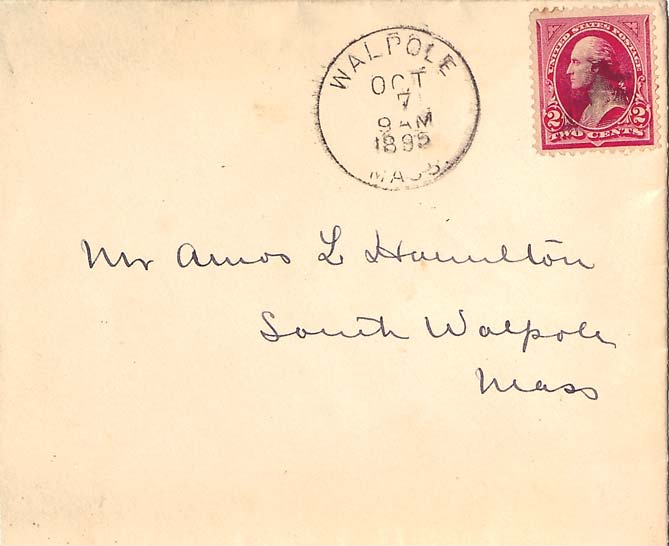 WALPOLE
OCT
7
9 AM
1895
MASS.
UNITED STATES POSTAGE
2 2
TWO CENTS
Mr Amos L Hamilton
South Walpole
Mass